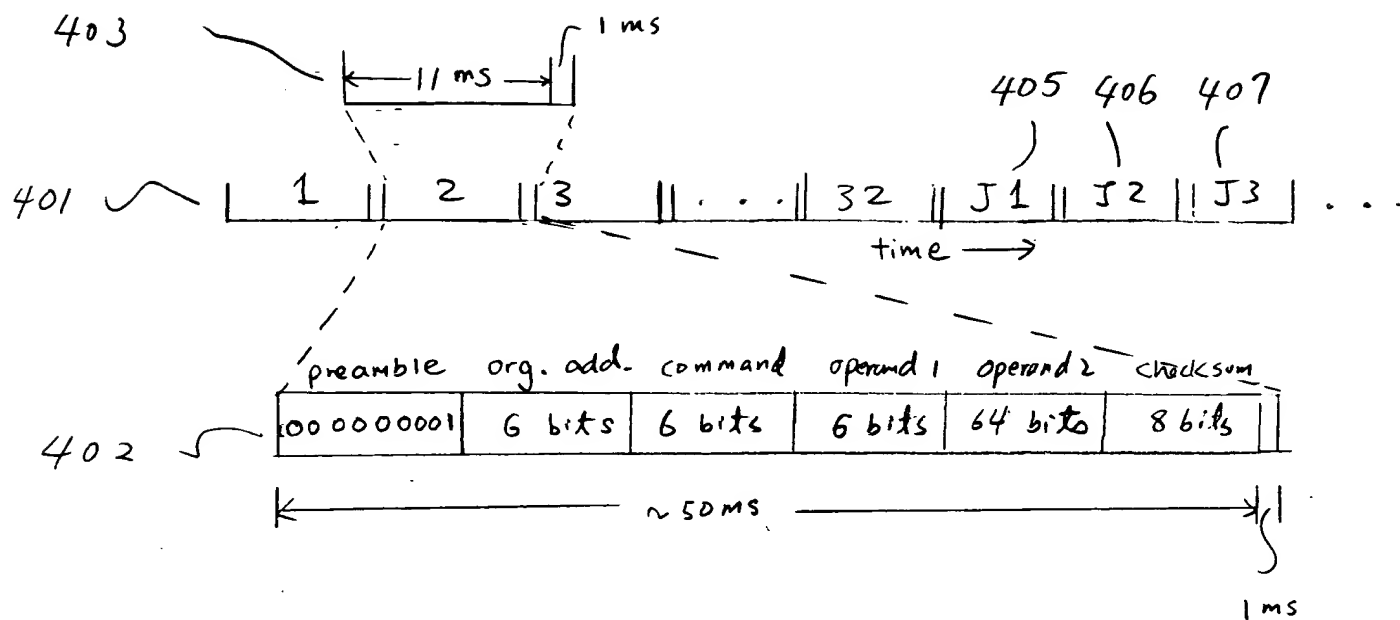 403
1 ms
11 ms
405 406 407
401
1 2 3 . . . 32 J1 J2 J3 . . .
time
preamble org. add. command operand 1 operand 2 checksum
000000001 6 bits 6 bits 6 bits 64 bits 8 bits
402
~ 50 ms
1 ms